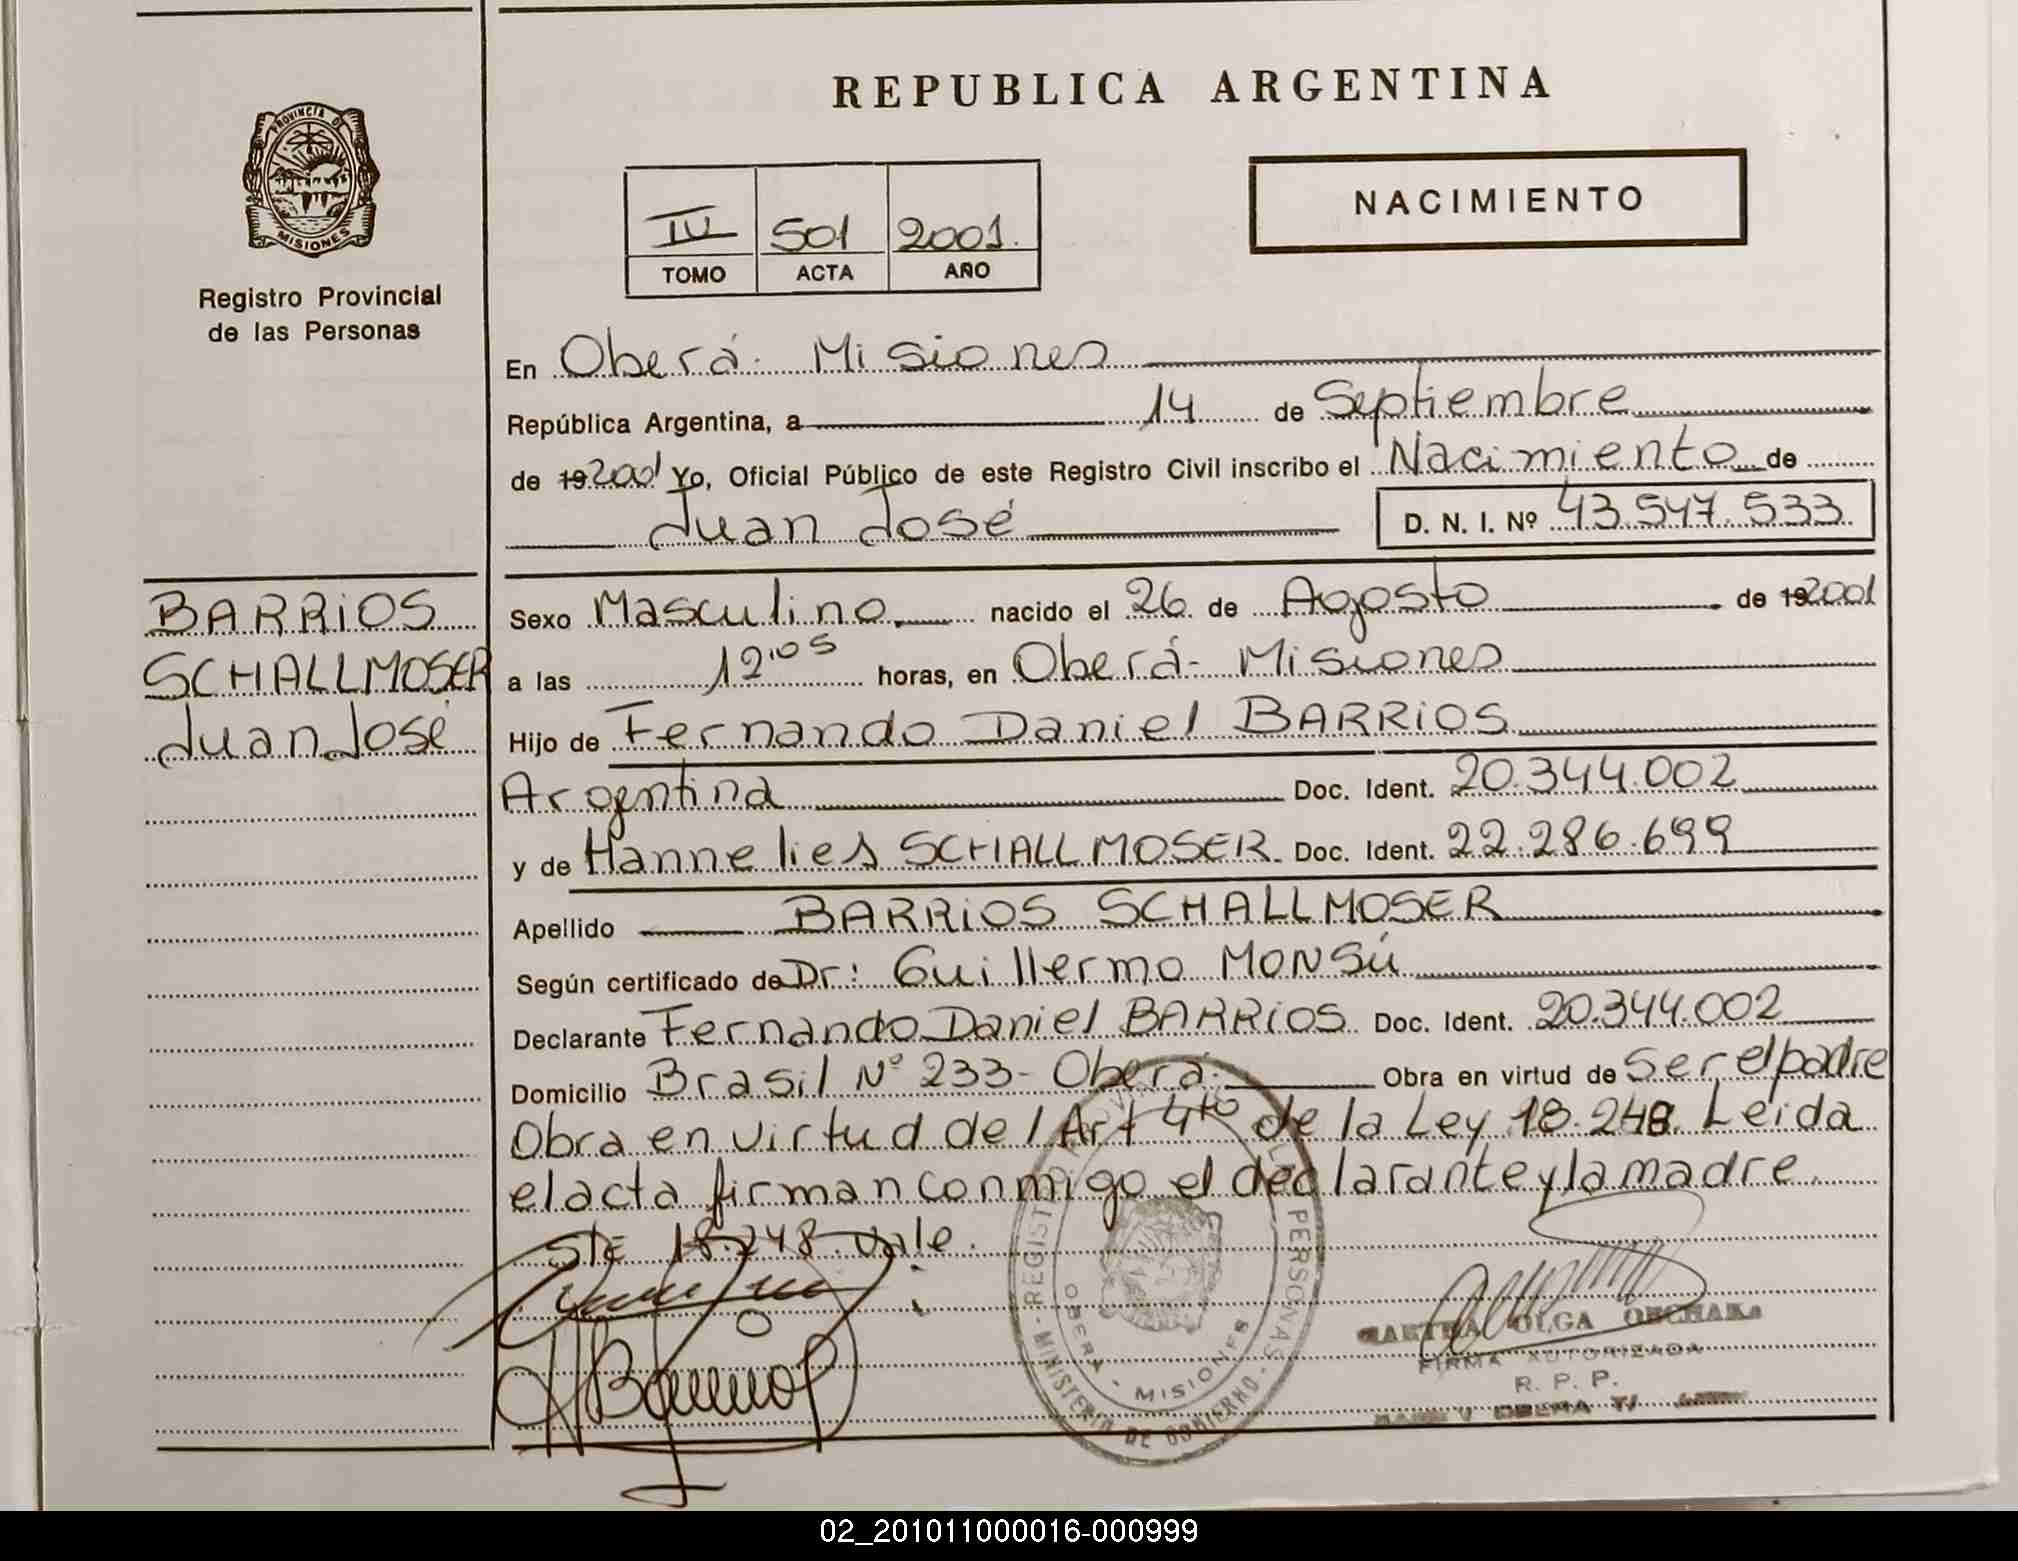 REPUBLICA ARGENTINA
NACIMIENTO
PROVINCIA DE
MISIONES
Registro Provincial
de las Personas
IV 501 2001.
TOMO ACTA AÑO
En Oberá. Misiones
República Argentina, a 14 de Septiembre
de 19 2001 Yo, Oficial Público de este Registro Civil inscribo el Nacimiento de
Juan José D. N. I. Nº 43.547.533.
BARRIOS
SCHALLMOSER
Juan José
Sexo Masculino. nacido el 26 de Agosto de 19 2001
a las 12,05 horas, en Oberá- Misiones
Hijo de Fernando Daniel BARRIOS
Argentina Doc. Ident. 20.344.002
y de Hannelies SCHALLMOSER. Doc. Ident. 22.286.699
Apellido BARRIOS SCHALLMOSER
Según certificado de Dr: Guillermo MONSÚ
Declarante Fernando Daniel BARRIOS Doc. Ident. 20.344.002
Domicilio Brasil Nº 233- Oberá. Obra en virtud de Ser el padre
Obra en virtud del Art 4to de la Ley 18.248. Leida
el acta firman conmigo el declarante y la madre.
Ste 18.248. vale.
REGISTRO PROVINCIAL DE LAS PERSONAS - MINISTERIO DE GOBIERNO -
OBERA - MISIONES
OLGA
FIRMA AUTORIZADA
R. P. P.
02_201011000016-000999